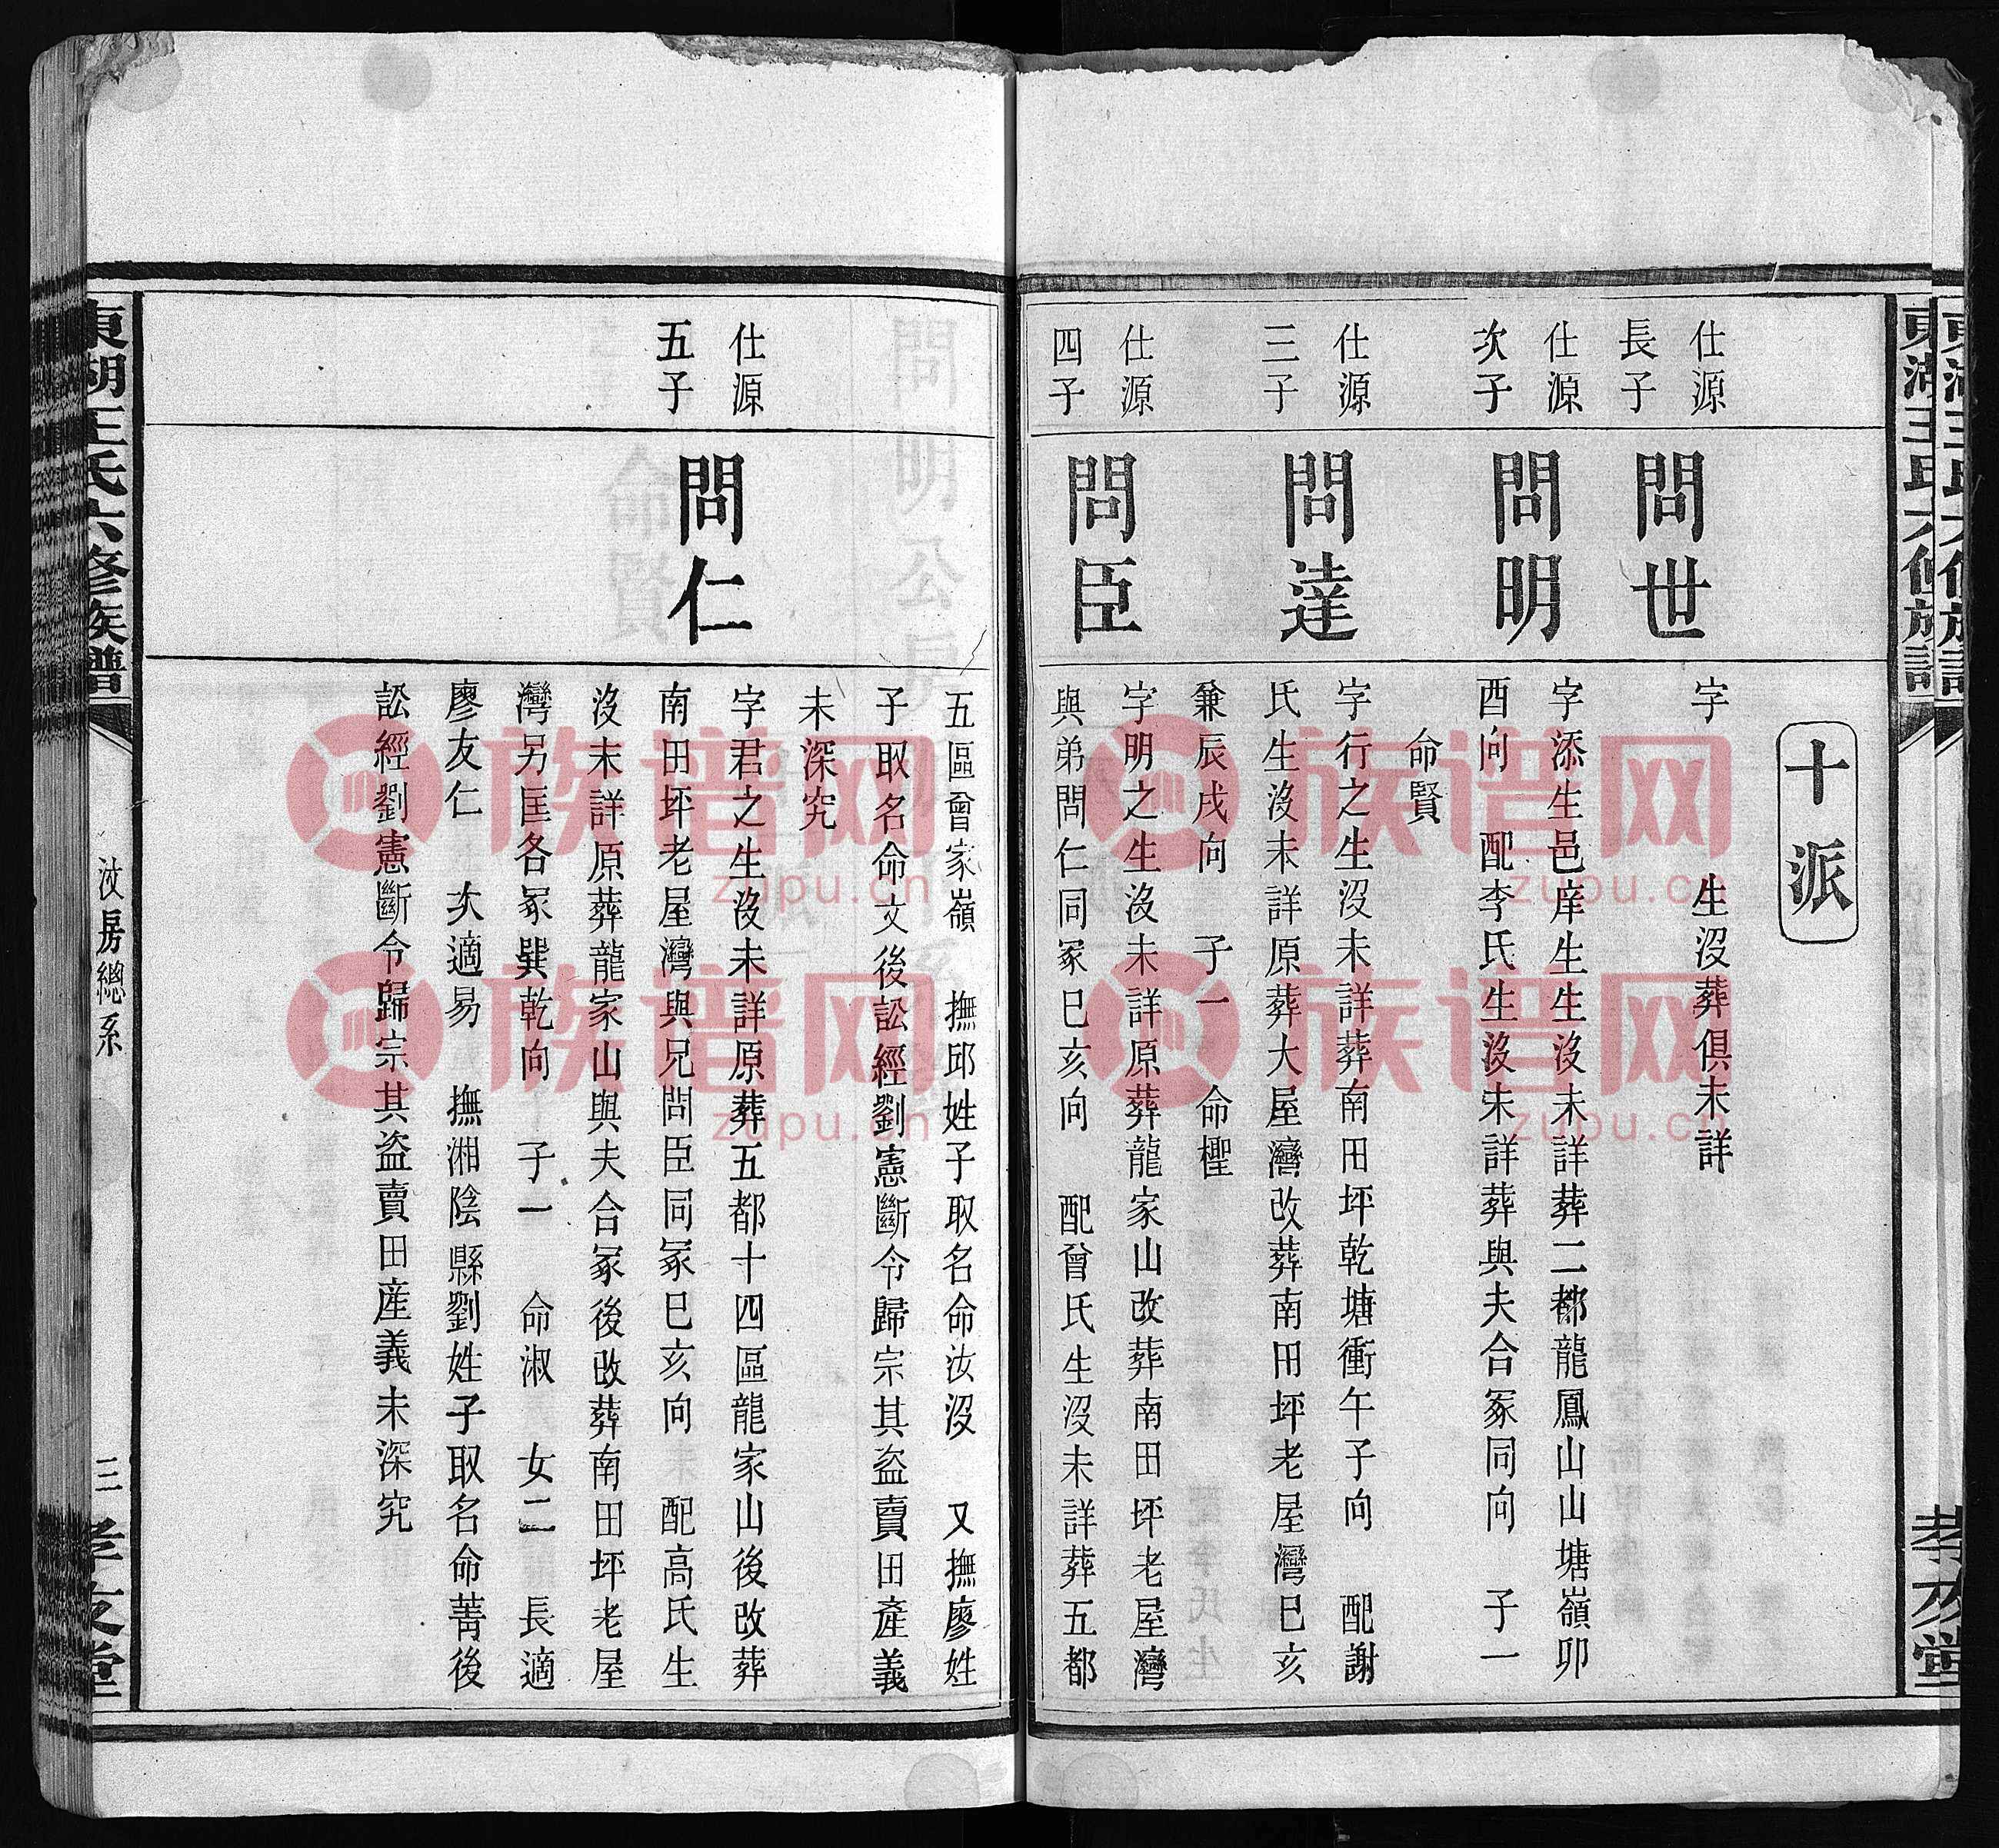 東湖王氏六修族譜
孝友堂
十派
仕源
長子
問世
字　生沒葬俱未詳
仕源
次子
問明
字添生邑庠生生沒未詳葬二都龍鳳山山塘嶺卯
酉向　配李氏生沒未詳葬與夫合冢同向　子一
命賢
仕源
三子
問達
字行之生沒未詳葬南田坪乾塘衝午子向　配謝
氏生沒未詳原葬大屋灣改葬南田坪老屋灣巳亥
兼辰戌向　子一　命𣞀
仕源
四子
問臣
字明之生沒未詳原葬龍家山改葬南田坪老屋灣
與弟問仁同冢巳亥向　配曾氏生沒未詳葬五都
五區曾家嶺　撫邱姓子取名命汝沒　又撫廖姓
子取名命文後訟經劉憲斷令歸宗其盜賣田產義
未深究
仕源
五子
問仁
字君之生沒未詳原葬五都十四區龍家山後改葬
南田坪老屋灣與兄問臣同冢巳亥向　配高氏生
沒未詳原葬龍家山與夫合冢後改葬南田坪老屋
灣另匡各冢巽乾向　子一　命淑　女二　長適
廖友仁　次適易　撫湘陰縣劉姓子取名命菁後
訟經劉憲斷令歸宗其盜賣田產義未深究
東湖王氏六修族譜
汶房總系
三
孝友堂
族谱网
zupu.cn
族谱网
zupu.cn
族谱网
zupu.cn
族谱网
zupu.cn